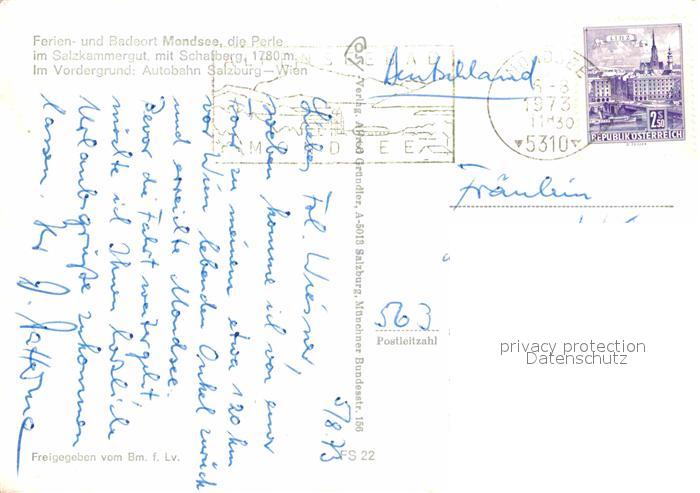 Ferien- und Badeort Mondsee, die Perle
im Salzkammergut, mit Schafberg, 1780 m
Im Vordergrund: Autobahn Salzburg — Wien
Deutschland
MONDSEE
1973
5310
LINZ
2.50
REPUBLIK ÖSTERREICH
Fräulein
563
Postleitzahl
privacy protection
Datenschutz
Verlag Alfred Gründler, A-5013 Salzburg, Münchner Bundesstr. 156
5/8.73
Liebes Frl. Wiesner,
soeben komme ich von einer
Fahrt zu meinem etwa 120 km
vor Wien lebenden Onkel zurück
und erreichte Mondsee.
Bevor die Fahrt weitergeht
möchte ich Ihnen herzliche
Urlaubsgrüße zukommen
lassen. Ihr
Freigegeben vom Bm. f. Lv.
FS 22